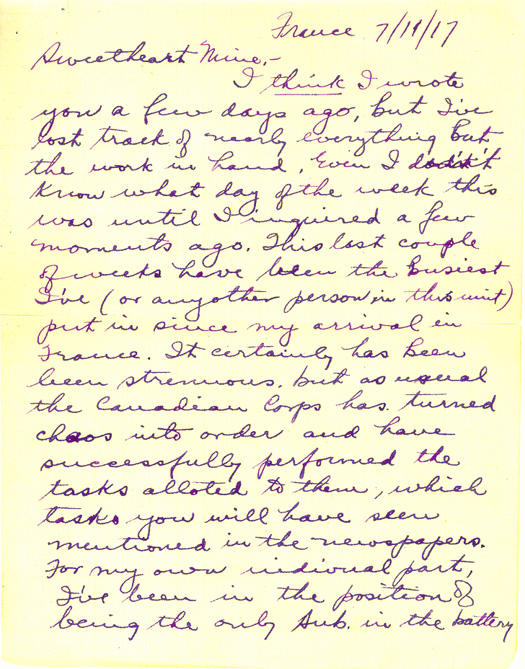 France 7/11/17
Sweetheart Mine,-
I think I wrote
you a few days ago, but I've
lost track of nearly everything but
the work in hand. Even I didn't
know what day of the week this
was until I inquired a few
moments ago. This last couple
of weeks have been the busiest
I've (or any other person in this unit)
put in since my arrival in
France. It certainly has been
been strenuous, but as usual
the Canadian Corps has turned
chaos into order and have
successfully performed the
tasks alloted to them, which
tasks you will have seen
mentioned in the newspapers.
For my own indivual part,
I've been in the position of
being the only Sub. in the battery